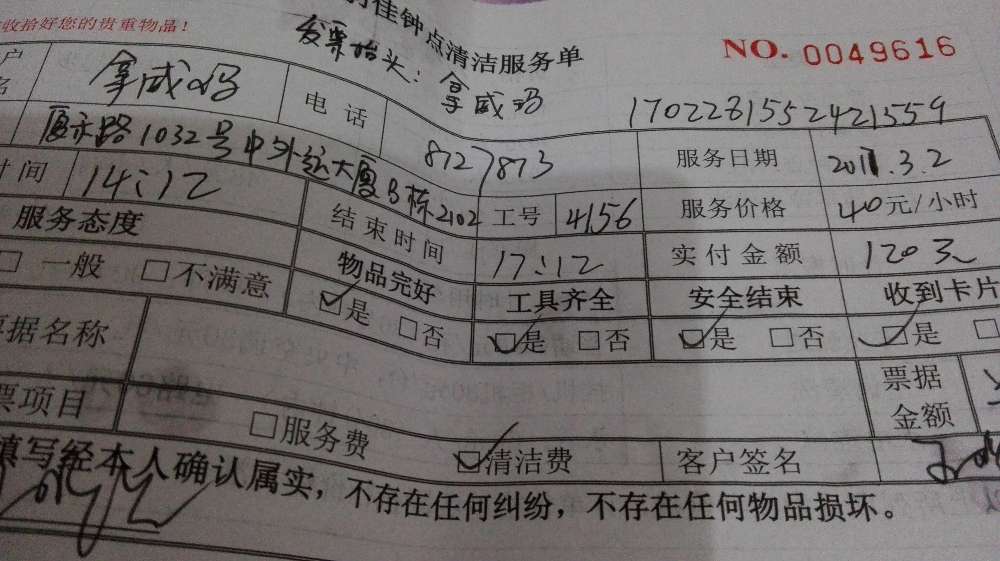 收拾好您的贵重物品!
佳钟点清洁服务单
NO. 0049616
发票抬头: 拿威玛
户名 拿威玛 电话 8127873 1702281552421559
1032号中外运大厦B栋2102 服务日期 2017.3.2
时间 14:12 结束时间 17:12 工号 4156 服务价格 40元/小时
实付金额 120元
服务态度 物品完好 工具齐全 安全结束 收到卡片
□一般 □不满意 ☑是 □否 ☑是 □否 ☑是 □否 ☑是 □
票据名称 票据金额
票项目 □服务费 ☑清洁费 客户签名
填写经本人确认属实，不存在任何纠纷，不存在任何物品损坏。